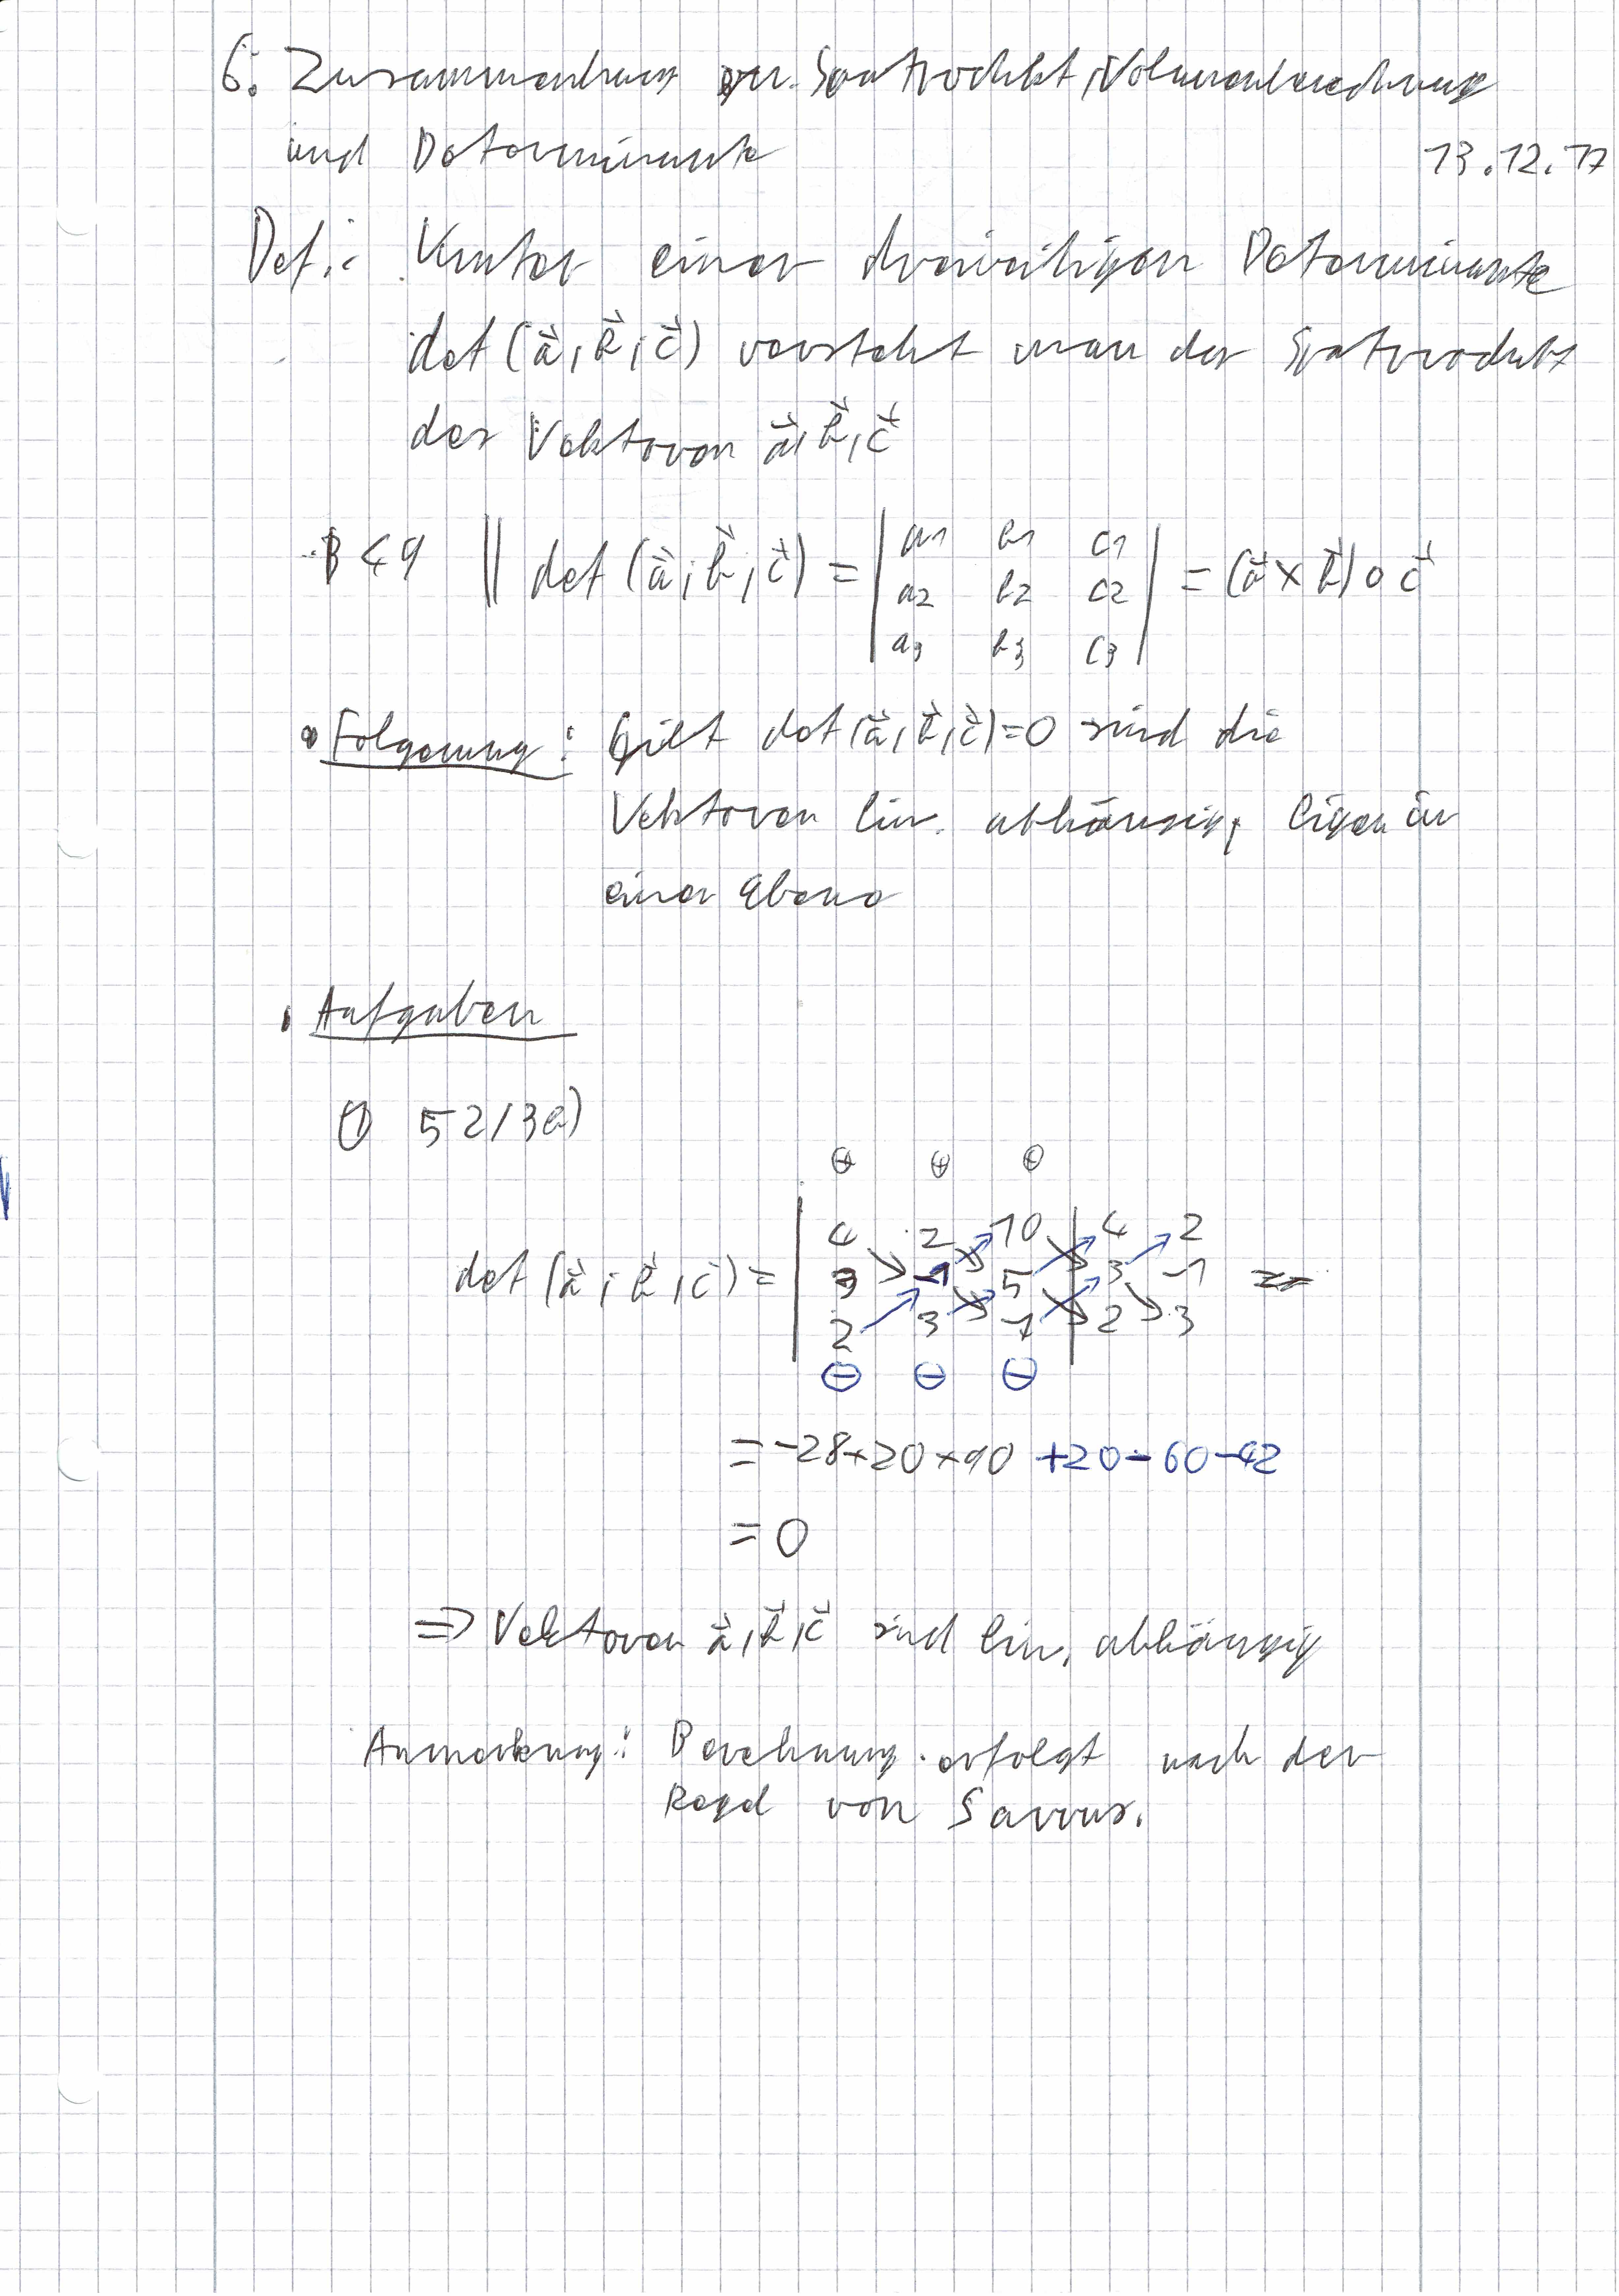 6. Zusammenhang zw. Spatprodukt, Volumenberechnung
und Determinante 13.12.17
Def.: Unter einer dreireihigen Determinante
det (a⃗, b⃗, c⃗) versteht man das Spatprodukt
der Vektoren a⃗, b⃗, c⃗
B 49 || det (a⃗, b⃗, c⃗) = | a1 b1 c1 | = (a⃗ × b⃗) ∘ c⃗
a2 b2 c2
a3 b3 c3
• Folgerung: Gilt det (a⃗, b⃗, c⃗) = 0 sind die
Vektoren lin. abhängig, liegen in
einer Ebene
• Aufgaben
① 52/3a)
⊕ ⊕ ⊕
4 2 10 | 4 2
det (a⃗, b⃗, c⃗) = | 3 -1 5 | 3 -1 =
2 3 -7 | 2 3
⊖ ⊖ ⊖
= -28 + 20 + 90 + 20 - 60 - 42
= 0
⇒ Vektoren a⃗, b⃗, c⃗ sind lin. abhängig
Anmerkung: Berechnung erfolgt nach der
Regel von Sarrus.